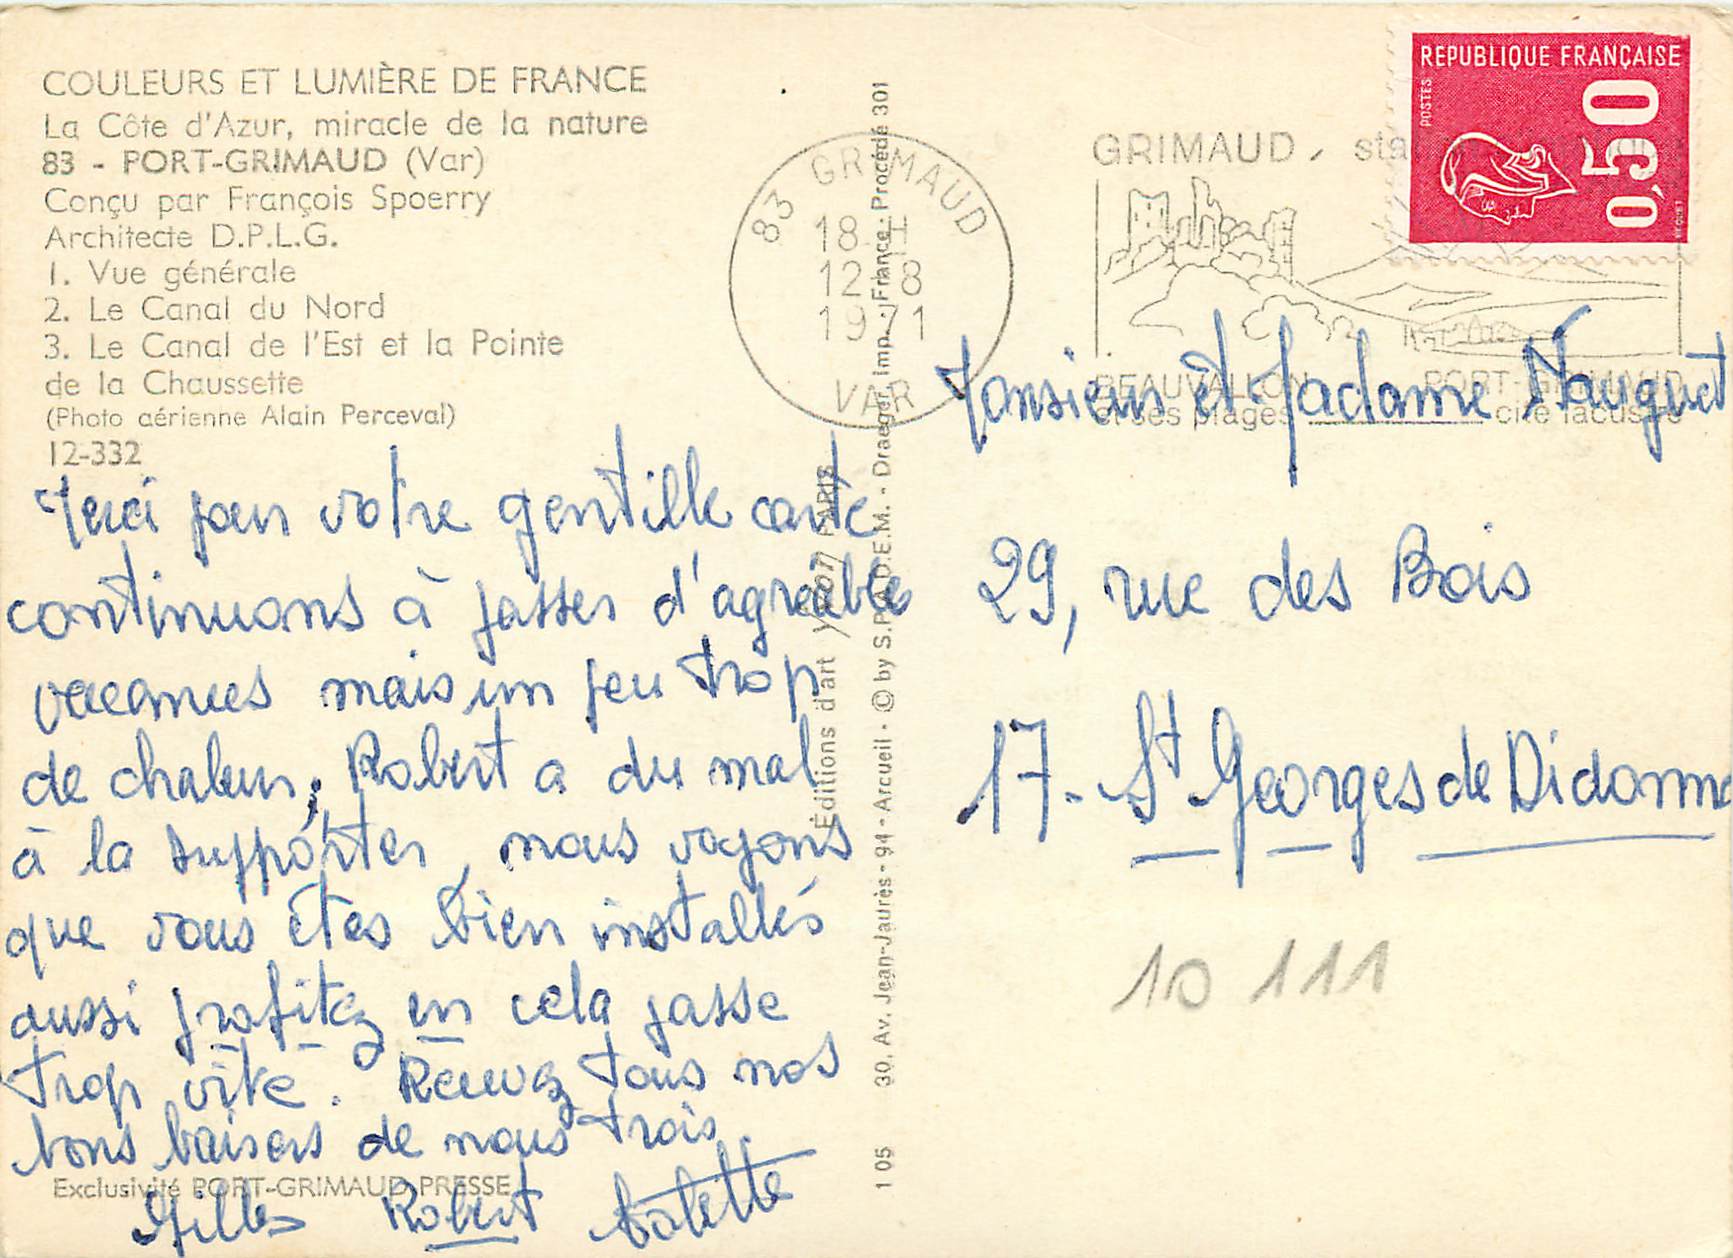 COULEURS ET LUMIÈRE DE FRANCE
La Côte d'Azur, miracle de la nature
83 - PORT-GRIMAUD (Var)
Conçu par François Spoerry
Architecte D.P.L.G.
1. Vue générale
2. Le Canal du Nord
3. Le Canal de l'Est et la Pointe
de la Chaussette
(Photo aérienne Alain Perceval)
12-332
Merci pour votre gentille carte
continuons à passer d'agréables
vacances mais un peu trop
de chaleur, Robert a du mal
à la supporter, nous voyons
que vous êtes bien installés
aussi profitez en cela passe
trop vite. Recevez tous nos
bons baisers de nous trois
Exclusivité PORT-GRIMAUD-PRESSE
Gilles Robert
Éditions d'art yvon PARIS
30, Av. Jean-Jaurès - 94 - Arcueil - © by S.P.A.D.E.M. - Draeger Imp. - France - Procédé 301
1 05
83 GRIMAUD
18 H
12 - 8
1971
VAR
GRIMAUD, sta
BEAUVALLON
et ses plages
PORT-GRIMAUD
cité lacustre
REPUBLIQUE FRANÇAISE
POSTES
0,50
BEQUET
Monsieur et Madame Nauguet
29, rue des Bois
17 - St Georges de Didonne
10 111